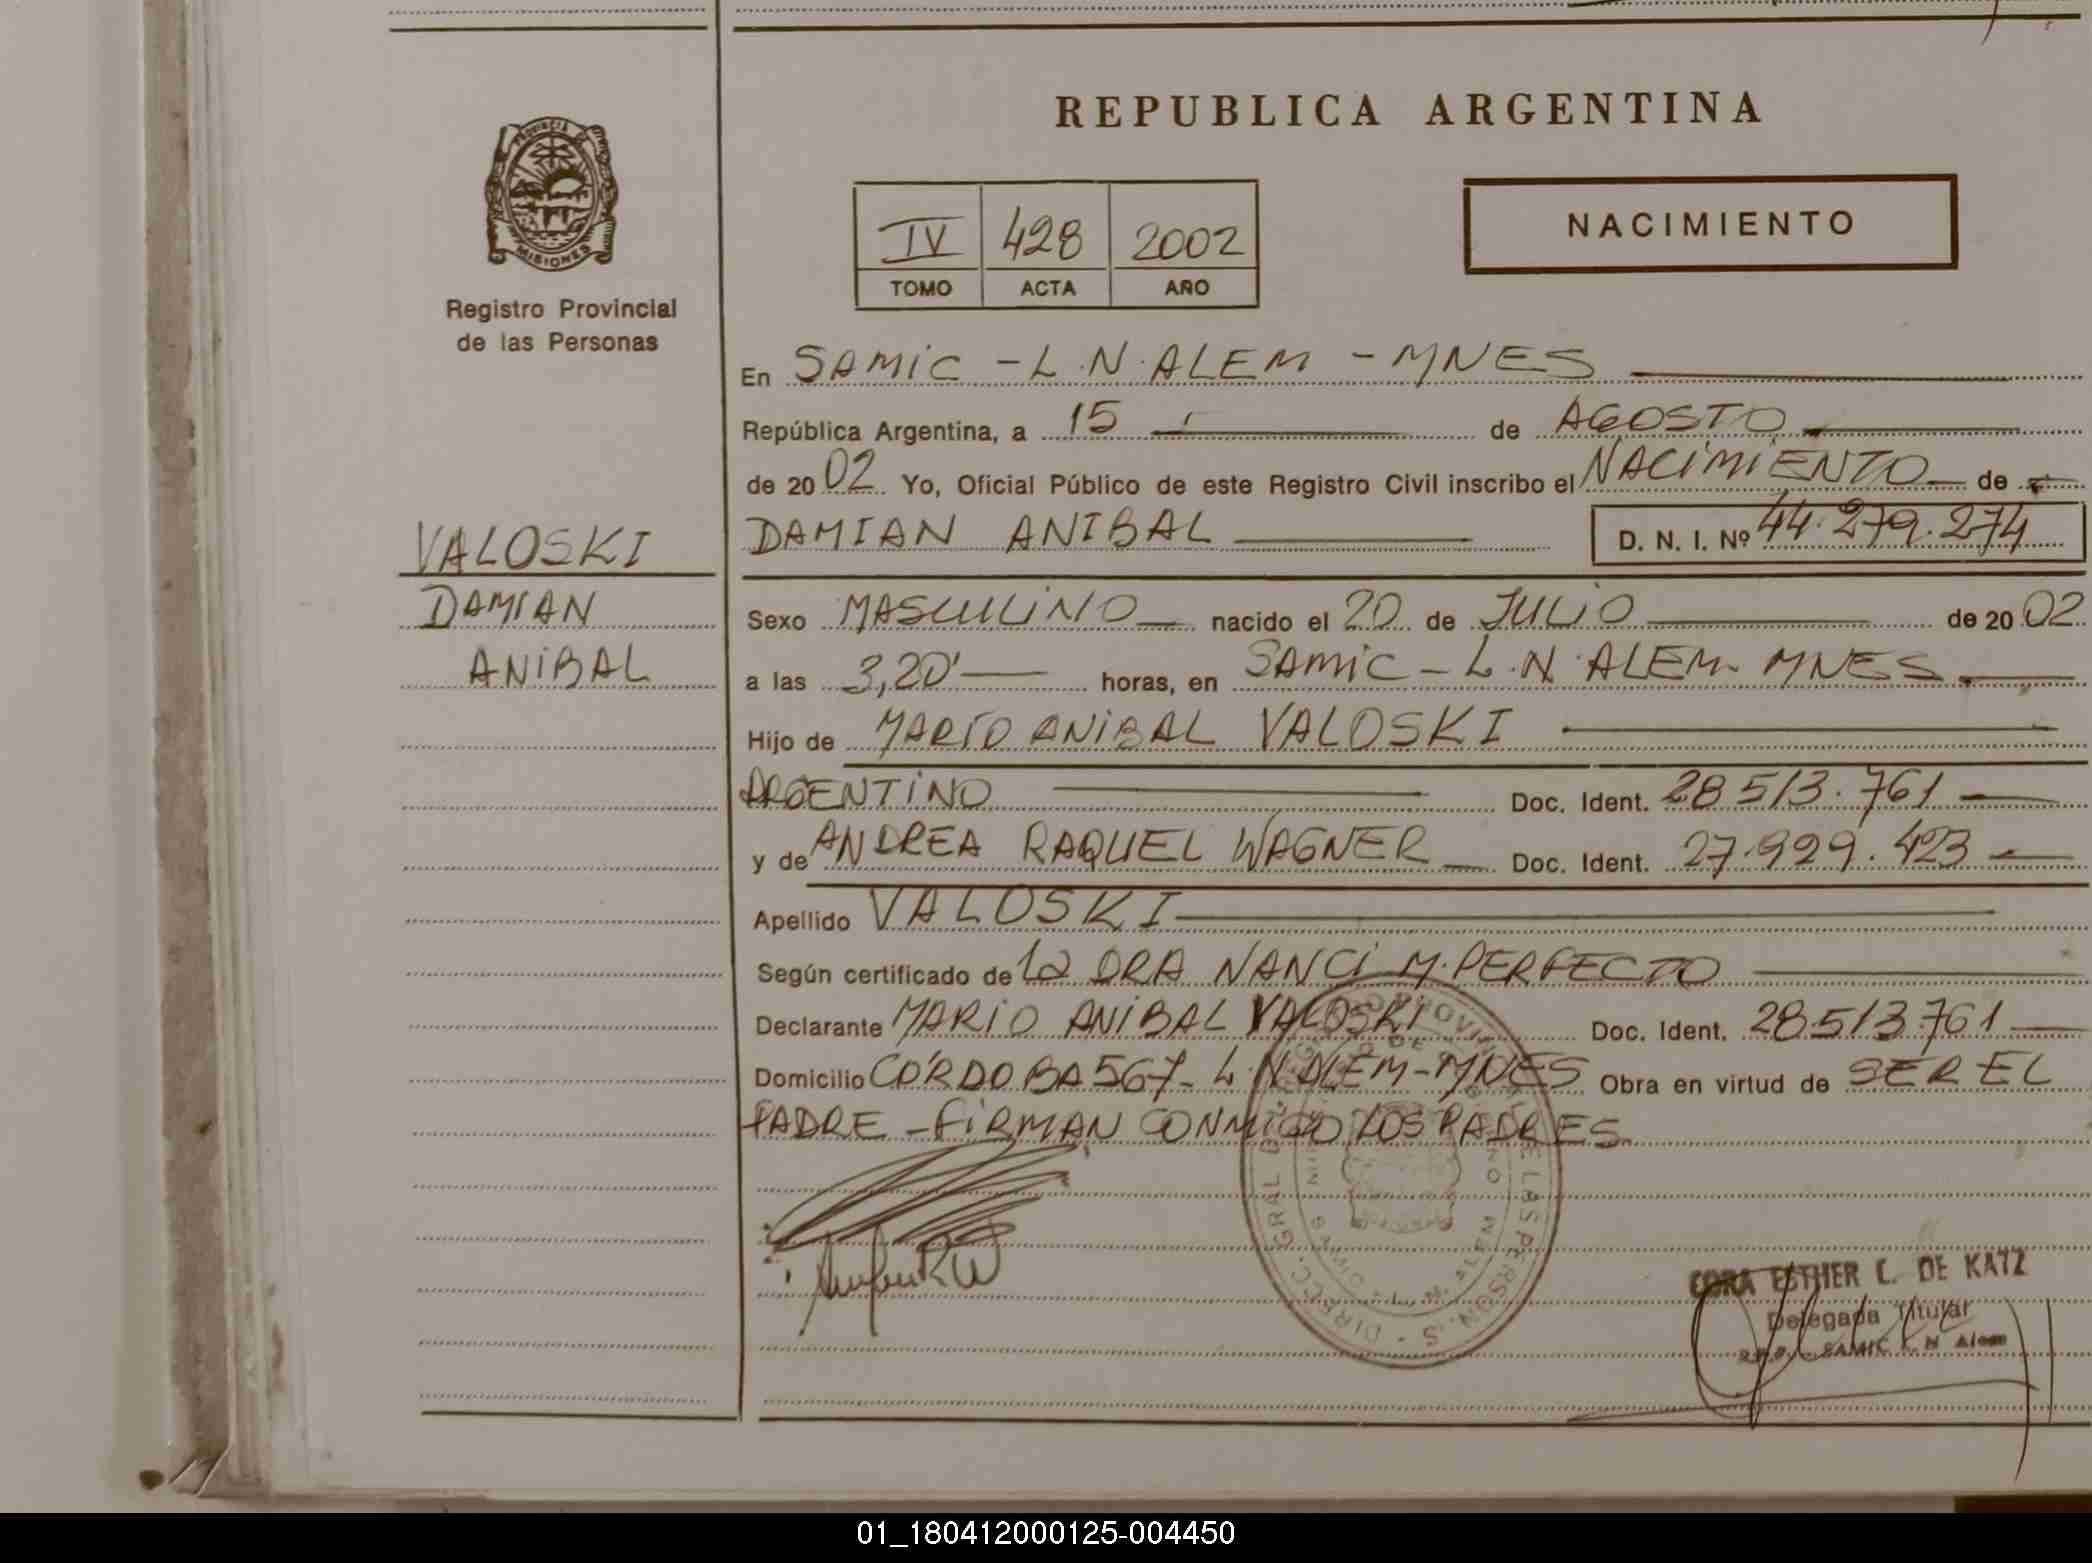 REPUBLICA ARGENTINA
PROVINCIA DE MISIONES
Registro Provincial
de las Personas
IV 428 2002
TOMO ACTA AÑO
NACIMIENTO
En SAMIC - L.N. ALEM - MNES
República Argentina, a 15 de AGOSTO
de 2002 Yo, Oficial Público de este Registro Civil inscribo el NACIMIENTO de
DAMIAN ANIBAL D. N. I. Nº 44.279.274
VALOSKI
DAMIAN
ANIBAL
Sexo MASCULINO nacido el 20 de JULIO de 2002
a las 3,20' horas, en SAMIC - L.N. ALEM - MNES
Hijo de MARIO ANIBAL VALOSKI
ARGENTINO Doc. Ident. 28 513.761
y de ANDREA RAQUEL WAGNER Doc. Ident. 27.929.423
Apellido VALOSKI
Según certificado de la DRA NANCI M. PERFECTO
Declarante MARIO ANIBAL VALOSKI Doc. Ident. 28513761
Domicilio CÓRDOBA 567 - L.N. ALEM - MNES Obra en virtud de SER EL
PADRE - FIRMAN CONMIGO LOS PADRES
CORA ESTHER C. DE KATZ
Delegada Titular
SAMIC L. N Alem
01_180412000125-004450